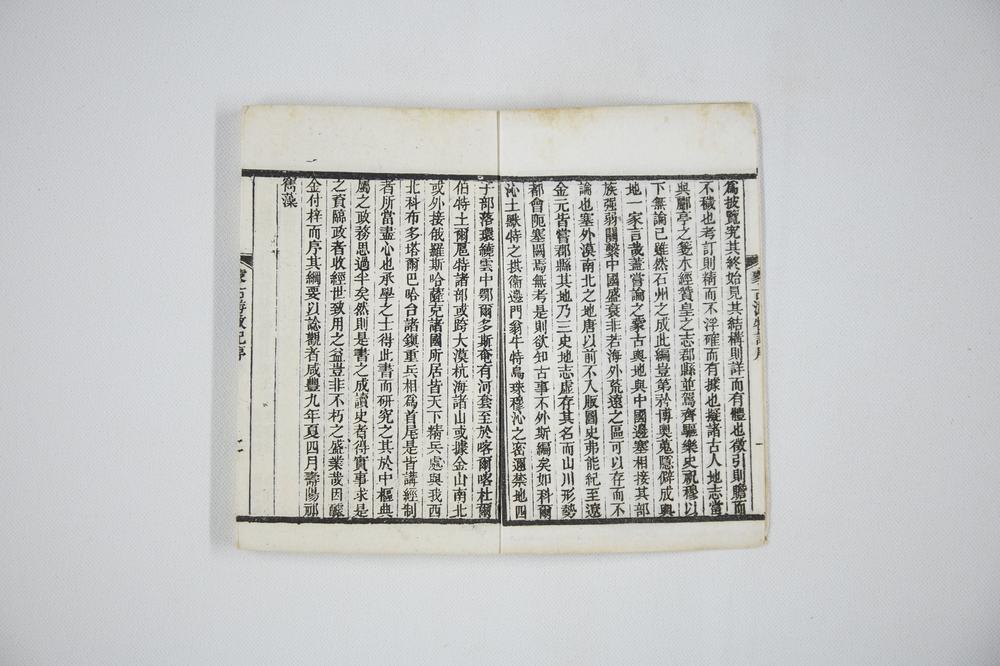 蒙古游牧記序
一
為披覽究其終始見其結構則詳而有體也徵引則贍而
不穢也考訂則精而不浮確而有據也擬諸古人地志當
與酈亭之箋水經贊皇之志郡縣並駕齊驅樂史祝穆以
下無論已雖然石州之成此編豈第矜博奧蒐隱僻成輿
地一家言哉蓋嘗論之蒙古輿地與中國邊塞相接其部
族強弱關繫中國盛衰非若海外荒遠之區可以存而不
論也塞外漠南北之地唐以前不入版圖史弗能紀至遼
金元皆嘗郡縣其地乃三史地志虛存其名而山川形勢
都會阨塞闕焉無考是則欲知古事不外斯編矣如科爾
沁土默特之拱衛邊門翁牛特烏珠穆沁之密邇禁地四
子部落環繞雲中鄂爾多斯奄有河套至於喀爾喀杜爾
伯特土爾扈特諸部或跨大漠杭海諸山或據金山南北
或外接俄羅斯哈薩克諸國所居皆天下精兵處與我西
北科布多塔爾巴哈台諸鎮重兵相為首尾是皆講經制
者所當盡心也承學之士得此書而研究之其於中樞典
屬之政務思過半矣然則是書之成讀史者得實事求是
之資臨政者收經世致用之益豈非不朽之盛業哉因釀
金付梓而序其綱要以諗觀者咸豐九年夏四月壽陽祁
寯藻
蒙古游牧記序